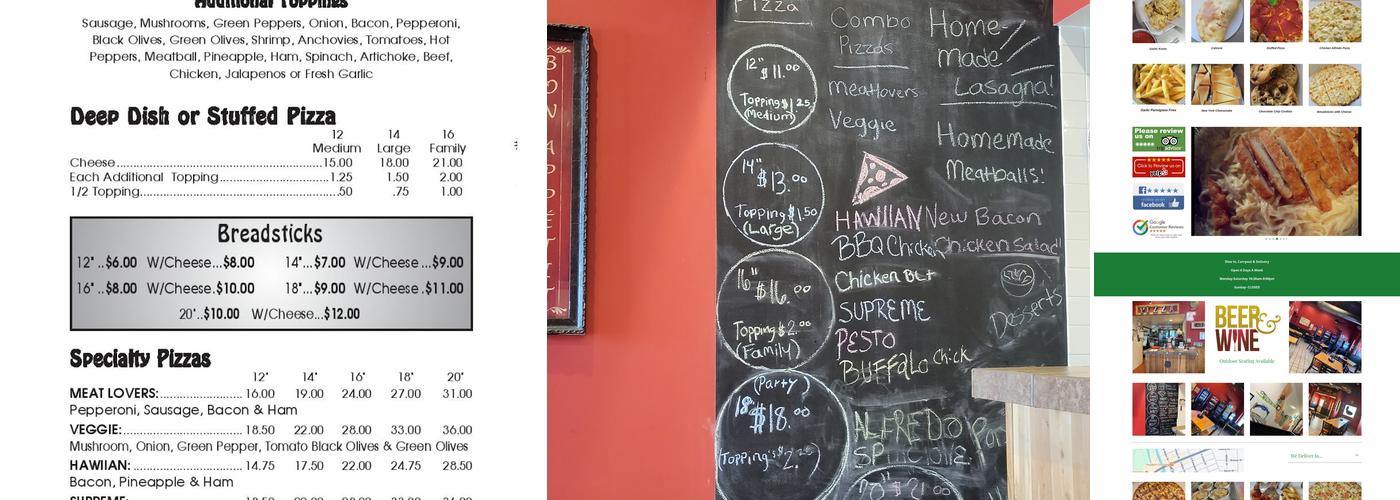 Additional Toppings
Sausage, Mushrooms, Green Peppers, Onion, Bacon, Pepperoni,
Black Olives, Green Olives, Shrimp, Anchovies, Tomatoes, Hot
Peppers, Meatball, Pineapple, Ham, Spinach, Artichoke, Beef,
Chicken, Jalapenos or Fresh Garlic
Deep Dish or Stuffed Pizza
12 14 16
Medium Large Family
Cheese 15.00 18.00 21.00
Each Additional Topping 1.25 1.50 2.00
1/2 Topping .50 .75 1.00
Breadsticks
12" ..$6.00 W/Cheese...$8.00 14"...$7.00 W/Cheese ...$9.00
16" ..$8.00 W/Cheese.$10.00 18"...$9.00 W/Cheese .$11.00
20"..$10.00 W/Cheese...$12.00
Specialty Pizzas
12" 14" 16" 18" 20"
MEAT LOVERS: 16.00 19.00 24.00 27.00 31.00
Pepperoni, Sausage, Bacon & Ham
VEGGIE: 18.50 22.00 28.00 33.00 36.00
Mushroom, Onion, Green Pepper, Tomato Black Olives & Green Olives
HAWIIAN: 14.75 17.50 22.00 24.75 28.50
Bacon, Pineapple & Ham
SUPREME:
Pizza
12"
$11.00
Topping $1.25
(Medium)
14"
$13.00
Topping $1.50
(Large)
16"
$16.00
Topping $2.00
(Family)
(Party)
18"
$18.00
Topping's $2.25
Combo
Pizzas
meatlovers
Veggie
HAWIIAN
BBQ Chicken
Chicken BLT
SUPREME
PESTO
BUFFALO Chick
ALFREDO
$21.00
Home-
made
Lasagna!
Homemade
Meatballs!
New Bacon
Chicken Salad
Desserts
Garlic Knots
Calzone
Stuffed Pizza
Chicken Alfredo Pizza
Garlic Parmigiana Fries
New York Cheesecake
Chocolate Chip Cookies
Breadsticks with Cheese
Please review
us on
advisor
Click to Review us on
yelp
facebook
Google
Customer Reviews
Dine In, Carryout & Delivery
Open 6 Days A Week
Monday-Saturday 10:30am-9:00pm
Sunday- CLOSED
BEER &
WINE
Outdoor Seating Available
We Deliver to...